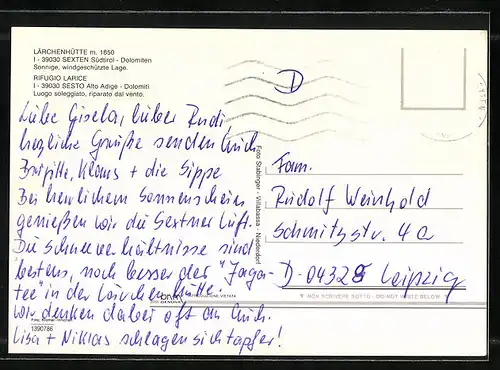 LÄRCHENHÜTTE m. 1650
I - 39030 SEXTEN Südtirol - Dolomiten
Sonnige, windgeschützte Lage.
RIFUGIO LARICE
I - 39030 SESTO Alto Adige - Dolomiti
Luogo soleggiato, riparato dal vento.
D
Liebe Gisela, lieber Rudi
herzliche Grüße senden Euch
Brigitte, Klaus + die Sippe
Bei herrlichem Sonnenschein
genießen wir die Sextner Luft.
Die Schneeverhältnisse sind
bestens, noch besser der "Jager-
tee" in der Lärchenhütte.
Wir denken dabei oft an Euch.
Lisa + Niklas schlagen sich tapfer!
Foto Stabinger - Villabassa - Niederdorf
Fam.
Rudolf Weinhold
Schmitzstr. 4a
D-04328 Leipzig
NON SCRIVERE SOTTO - DO NOT WRITE BELOW
VIETATA
1390786